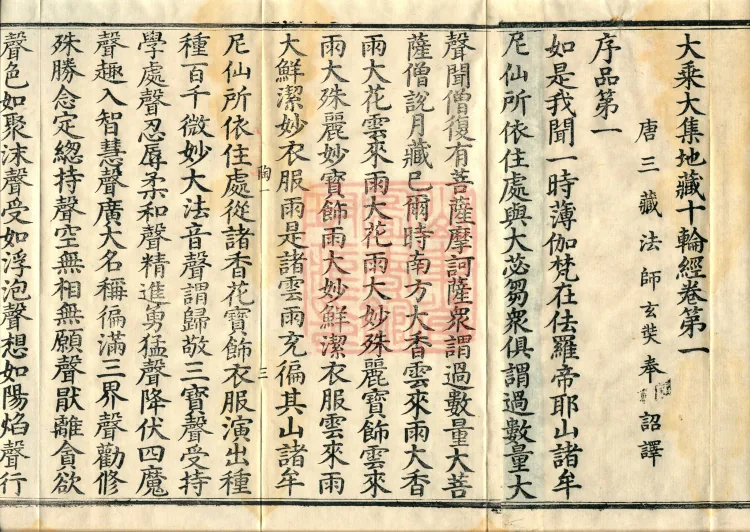 大乘大集地藏十輪經卷第一
唐三藏法師玄奘奉 詔譯
序品第一
如是我聞一時薄伽梵在佉羅帝耶山諸牟
尼仙所依住處與大苾芻衆俱謂過數量大
聲聞僧復有菩薩摩訶薩衆謂過數量大菩
薩僧說月藏已爾時南方大香雲來雨大香
雨大花雲來雨大花雨大妙殊麗寶飾雲來
雨大殊麗妙寶飾雨大妙鮮潔衣服雲來雨
大鮮潔妙衣服雨是諸雲雨充徧其山諸牟
尼仙所依住處從諸香花寶飾衣服演出種
陶一
三
種百千微妙大法音聲謂歸敬三寶聲受持
學處聲忍辱柔和聲精進勇猛聲降伏四魔
聲趣入智慧聲廣大名稱徧滿三界聲勸修
殊勝念定總持聲空無相無願聲猒離貪欲
聲色如聚沫聲受如浮泡聲想如陽焰聲行